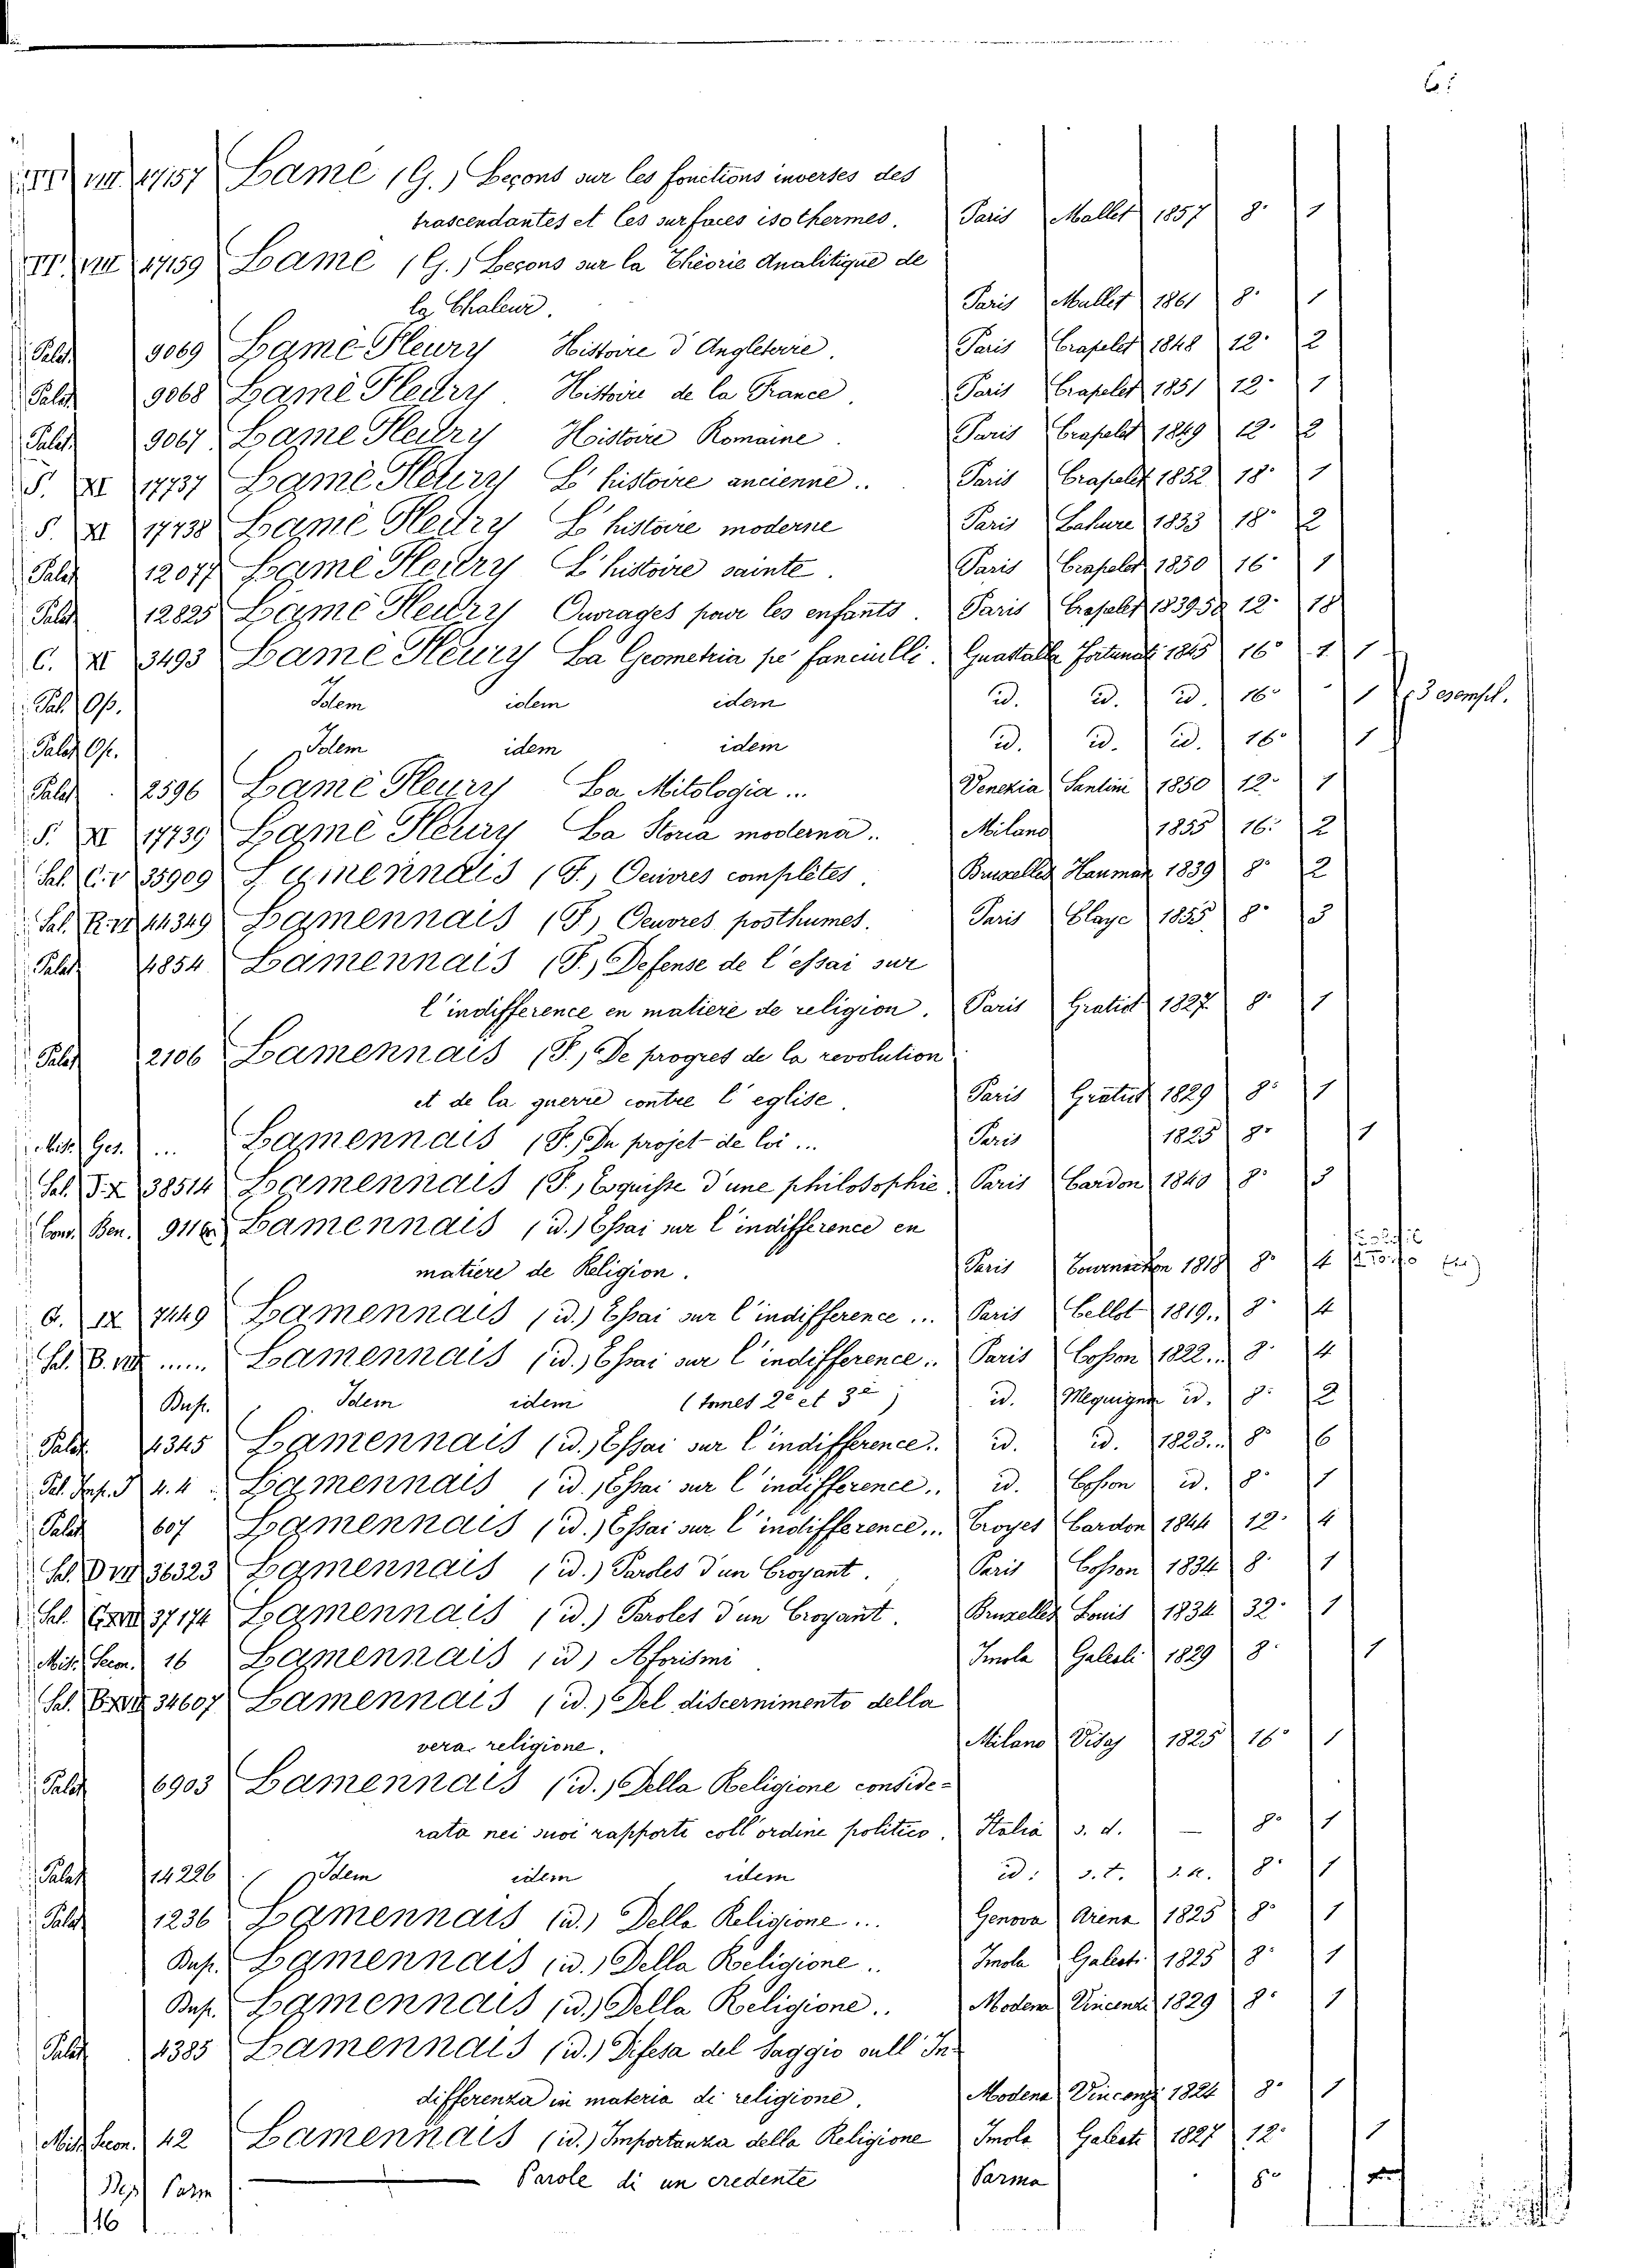 6:
VIII 47157 Lamé (G.) Leçons sur les fonctions inverses des
trascendantes et les surfaces isothermes. Paris Mallet 1857 8° 1
VIII 47159 Lamé (G.) Leçons sur la Théorie Analitique de
la Chaleur. Paris Mallet 1861 8° 1
Palat. 9069 Lamé Fleury Histoire d'Angleterre. Paris Crapelet 1848 12° 2
Palat. 9068 Lamé Fleury. Histoire de la France. Paris Crapelet 1851 12° 1
Palat. 9067 Lame Fleury Histoire Romaine. Paris Crapelet 1849 12° 2
S. XI 17737 Lamé Fleury L'histoire ancienne.. Paris Crapelet 1852 18° 1
S. XI 17738 Lamé Fleury L'histoire moderne Paris Lahure 1833 18° 2
Palat 12077 Lamé Fleury L'histoire sainte. Paris Crapelet 1850 16° 1
Palat 12825 Lamé Fleury Ouvrages pour les enfants. Paris Crapelet 1839.52 12° 18
C. XI 3493 Lamé Fleury La Geometria pe' fanciulli. Guastalla Fortunati 1845 16° 1 1
Pal. Op. Idem idem idem id. id. id. 16° 1 3 esempl.
Palat Op. Idem idem idem id. id. id. 16° 1
Palat 2596 Lamé Fleury La Mitologia... Venezia Santini 1850 12° 1
S. XI 17739 Lamé Fleury La Storia moderna.. Milano 1855 16° 2
Sal. C.V 35909 Lamennais (F.) Oeuvres complètes. Bruxelles Hauman 1839 8° 2
Sal. 44349 Lamennais (F.) Oeuvres posthumes. Paris Claye 1855 8° 3
Palat 4854 Lamennais (F.) Defense de l'essai sur
l'indifference en matiere de religion. Paris Gratiot 1827 8° 1
Palat 2106 Lamennais (F.) De progres de la revolution
et de la guerre contre l'eglise. Paris Gratiot 1829 8° 1
Mis. Ges. ... Lamennais (F.) Du projet de loi... Paris 1825 8° 1
Sal. 38514 Lamennais (F.) Esquisse d'une philosophie. Paris Cardon 1840 8° 3
Conv. Ben. 9116 Lamennais (id.) Essai sur l'indifference en
matiere de Religion. Paris Tournachon 1818 8° 4
IX 7449 Lamennais (id.) Essai sur l'indifference... Paris Cellot 1819.. 8° 4
Sal. B. VIII ..... Lamennais (id.) Essai sur l'indifference.. Paris Cosson 1822... 8° 4
Dup. Idem idem (tomes 2e et 3e) id. Mequignon id. 8° 2
Palat 4345 Lamennais (id.) Essai sur l'indifference.. id. id. 1823... 8° 6
4.4 Lamennais (id.) Essai sur l'indifference.. id. Cosson id. 8° 1
Palat 607 Lamennais (id.) Essai sur l'indifference... Troyes Cardon 1844 12° 4
Sal. D VII 36323 Lamennais (id.) Paroles d'un Croyant. Paris Cosson 1834 8° 1
Sal. 37174 Lamennais (id.) Paroles d'un Croyant. Bruxelles Louis 1834 32° 1
Mis. Secon. 16 Lamennais (id.) Aforismi Imola Galeati 1829 8° 1
Sal. 34607 Lamennais (id.) Del discernimento della
vera religione. Milano Visaj 1825 16° 1
Palat 6903 Lamennais (id.) Della Religione conside-
rata nei suoi rapporti coll'ordine politico. Italia s. d. — 8° 1
Palat 14226 Idem idem idem id: s.t. s.a. 8° 1
Palat 1236 Lamennais (id.) Della Religione... Genova Arena 1825 8° 1
Dup. Lamennais (id.) Della Religione.. Imola Galeati 1825 8° 1
Dup. Lamennais (id.) Della Religione.. Modena Vincenzi 1829 8° 1
Palat 4385 Lamennais (id.) Difesa del Saggio sull'In-
differenza in materia di religione. Modena Vincenzi 1824 8° 1
Mis. Secon. 42 Lamennais (id.) Importanza della Religione Imola Galeati 1827 12° 1
Dep. Parm Parole di un credente Parma 8°
116